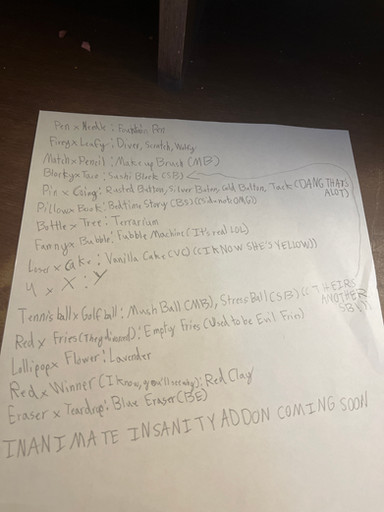 Pen x Needle: Fountain Pen
Firey x Leafy: Diver, Scratch, Wolly
Match x Pencil: Makeup Brush (MB)
Blocky x Taco: Sushi Block (SB)
Pin x Coiny: Rusted Button, Silver Button, Gold Button, Tack (DANG THATS ALOT)
Pillow x Book: Bedtime Story (BS)
Bottle x Tree: Terrarium
Fanny x Bubble: Fubble Machine (It's real LOL)
Loser x Cake: Vanilla Cake (VC) ((I KNOW SHE'S YELLOW))
4 x X: Y
Tennis ball x Golf ball: Mush Ball (MB), Stress Ball (SB) ((THEIRS ANOTHER SB!))
Red x Fries (They dinned): Empty Fries (Used to be Evil Fries)
Lollipop x Flower: Lavender
Red x Winner (I know, you'll see why): Red Clay
Eraser x Teardrop: Blue Eraser (BE)
INANIMATE INSANITY ADDON COMING SOON